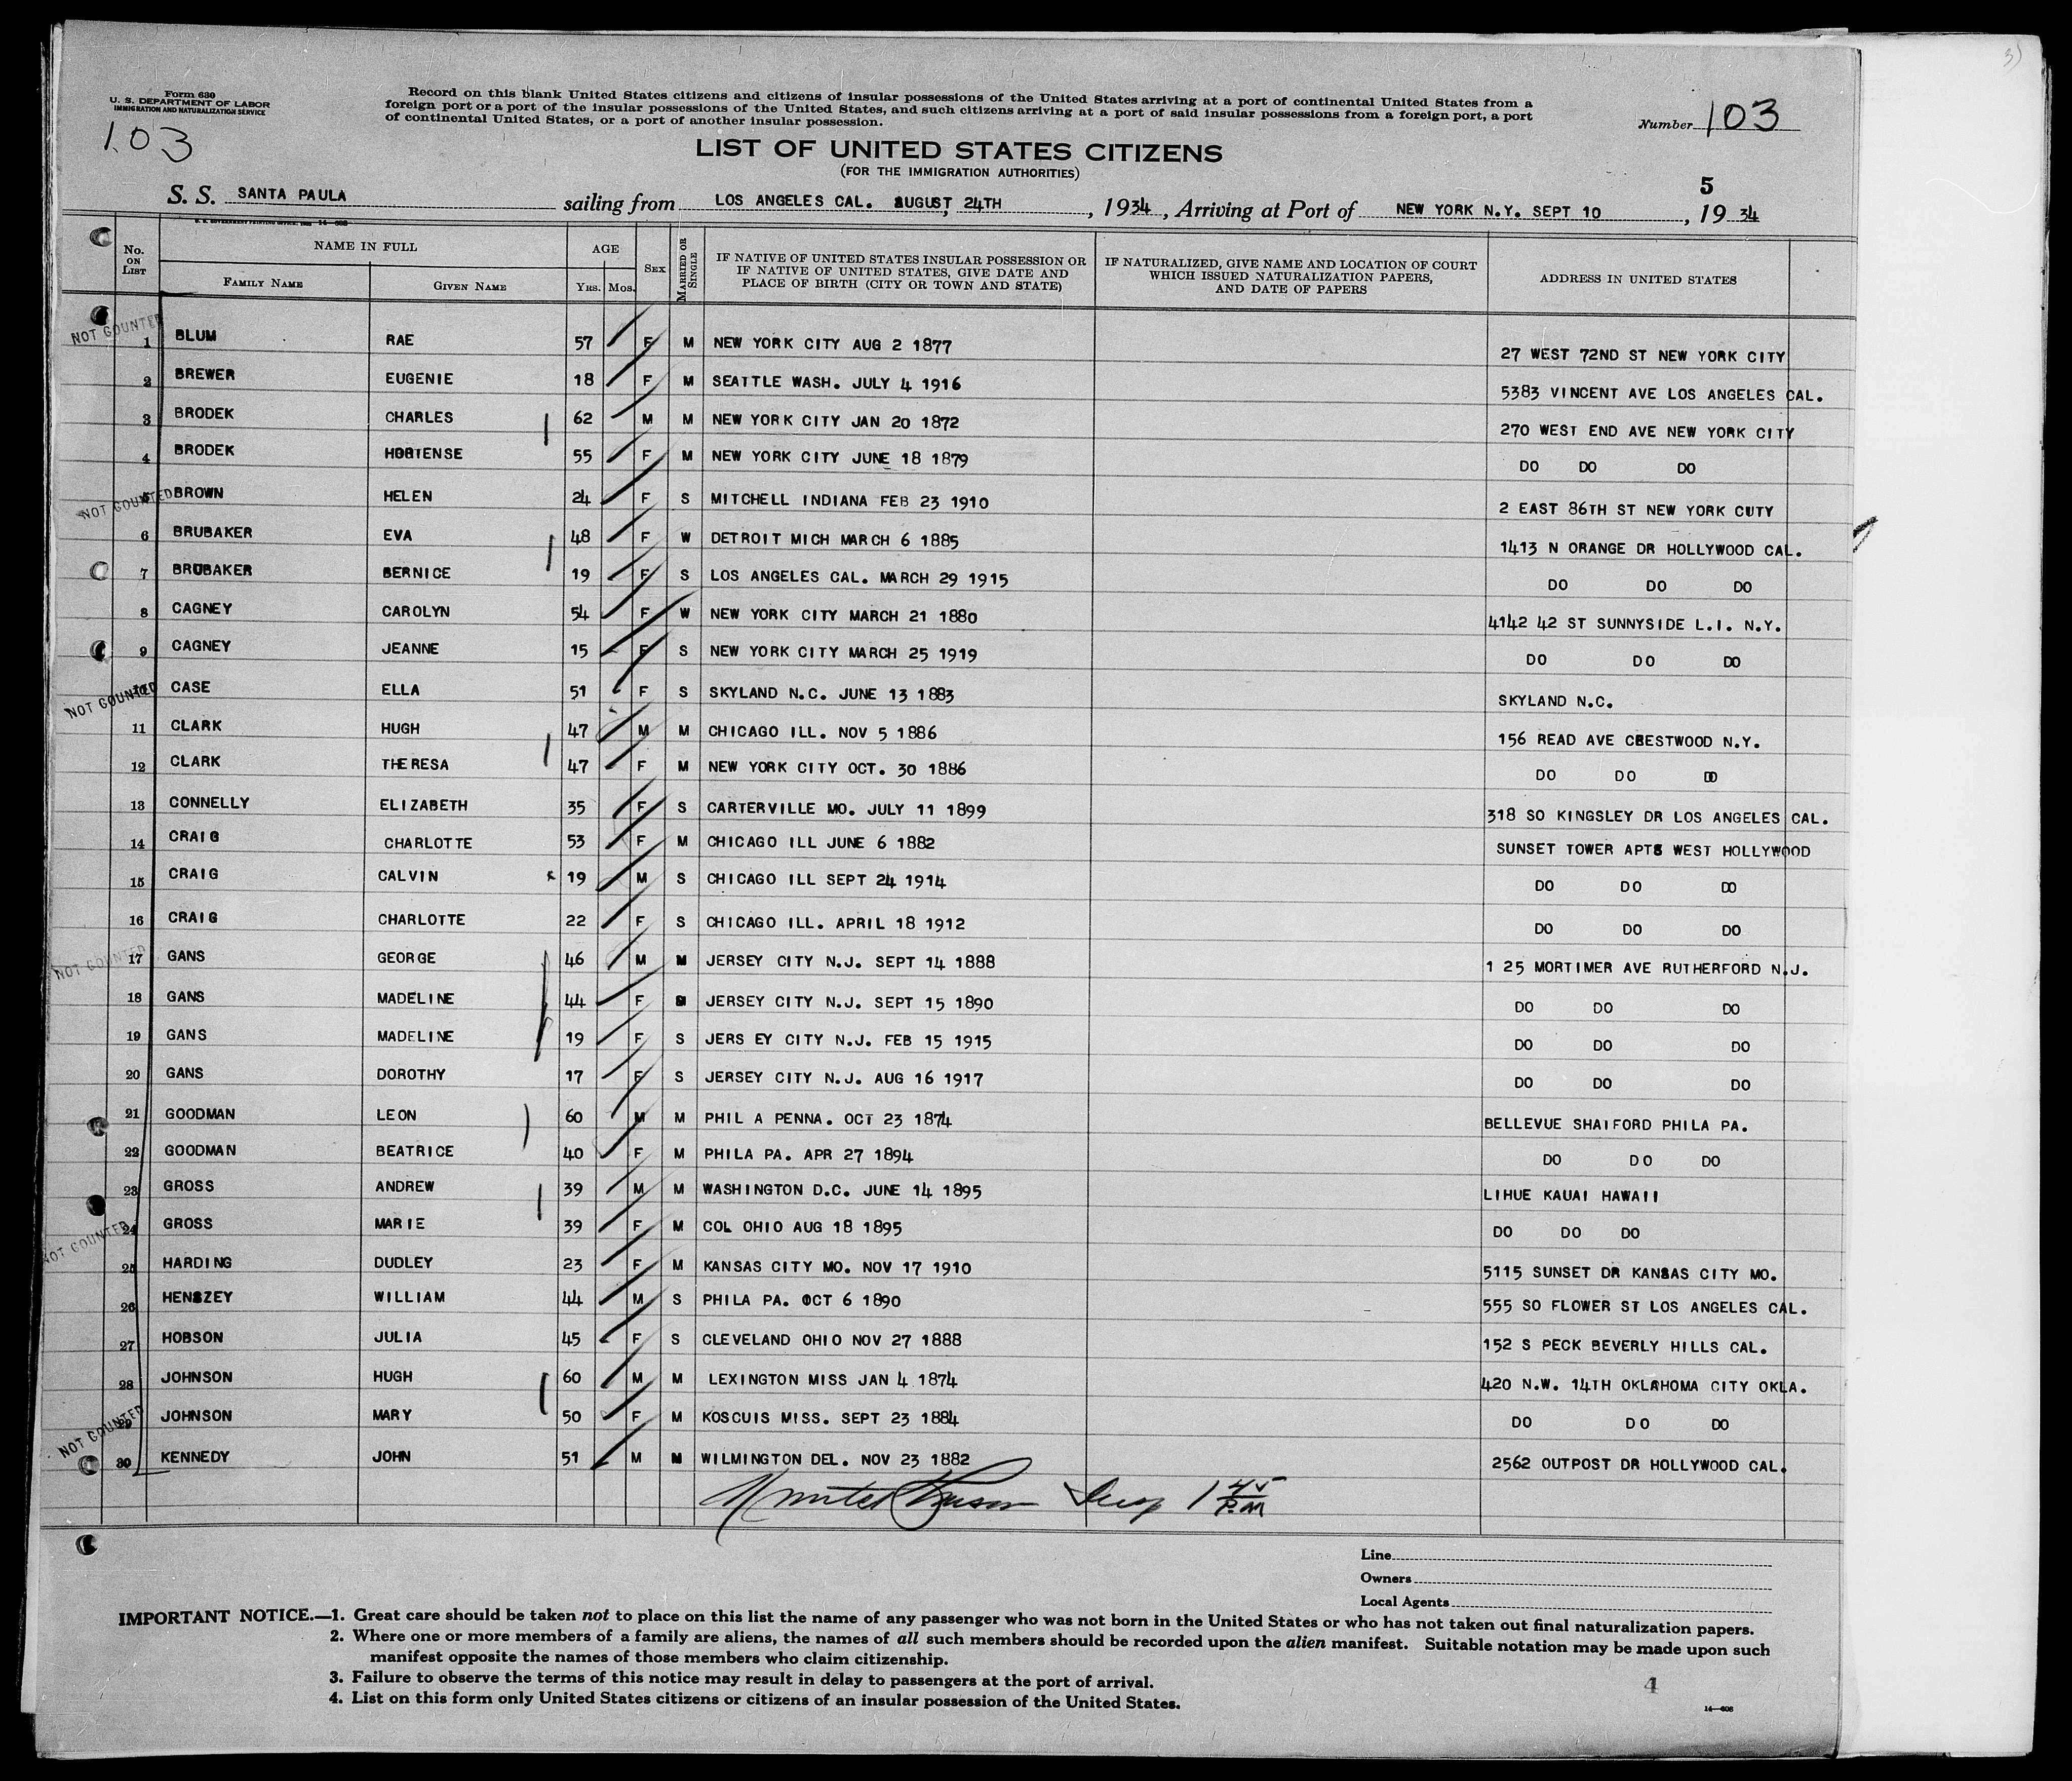 3)
Form 630
U. S. DEPARTMENT OF LABOR
IMMIGRATION AND NATURALIZATION SERVICE
103
Record on this blank United States citizens and citizens of insular possessions of the United States arriving at a port of continental United States from a
foreign port or a port of the insular possessions of the United States, and such citizens arriving at a port of said insular possessions from a foreign port, a port
of continental United States, or a port of another insular possession.
Number 103
LIST OF UNITED STATES CITIZENS
(FOR THE IMMIGRATION AUTHORITIES)
5
S. S. SANTA PAULA sailing from LOS ANGELES CAL. AUGUST, 24TH, 1934, Arriving at Port of NEW YORK N.Y. SEPT 10, 19 34
No. ON LIST NAME IN FULL FAMILY NAME GIVEN NAME AGE YRS. MOS. SEX MARRIED OR SINGLE IF NATIVE OF UNITED STATES INSULAR POSSESSION OR IF NATIVE OF UNITED STATES, GIVE DATE AND PLACE OF BIRTH (CITY OR TOWN AND STATE) IF NATURALIZED, GIVE NAME AND LOCATION OF COURT WHICH ISSUED NATURALIZATION PAPERS, AND DATE OF PAPERS ADDRESS IN UNITED STATES
NOT COUNTED 1 BLUM RAE 57 F M NEW YORK CITY AUG 2 1877 27 WEST 72ND ST NEW YORK CITY
2 BREWER EUGENIE 18 F M SEATTLE WASH. JULY 4 1916 5383 VINCENT AVE LOS ANGELES CAL.
3 BRODEK CHARLES 62 M M NEW YORK CITY JAN 20 1872 270 WEST END AVE NEW YORK CITY
4 BRODEK HORTENSE 55 F M NEW YORK CITY JUNE 18 1879 DO DO DO
NOT COUNTED 5 BROWN HELEN 24 F S MITCHELL INDIANA FEB 23 1910 2 EAST 86TH ST NEW YORK CUTY
6 BRUBAKER EVA 48 F W DETROIT MICH MARCH 6 1885 1413 N ORANGE DR HOLLYWOOD CAL.
7 BRUBAKER BERNICE 19 F S LOS ANGELES CAL. MARCH 29 1915 DO DO DO
8 CAGNEY CAROLYN 54 F W NEW YORK CITY MARCH 21 1880 4142 42 ST SUNNYSIDE L.I. N.Y.
9 CAGNEY JEANNE 15 F S NEW YORK CITY MARCH 25 1919 DO DO DO
NOT COUNTED 10 CASE ELLA 51 F S SKYLAND N.C. JUNE 13 1883 SKYLAND N.C.
11 CLARK HUGH 47 M M CHICAGO ILL. NOV 5 1886 156 READ AVE CRESTWOOD N.Y.
12 CLARK THERESA 47 F M NEW YORK CITY OCT. 30 1886 DO DO DO
13 CONNELLY ELIZABETH 35 F S CARTERVILLE MO. JULY 11 1899 318 SO KINGSLEY DR LOS ANGELES CAL.
14 CRAIG CHARLOTTE 53 F M CHICAGO ILL JUNE 6 1882 SUNSET TOWER APTS WEST HOLLYWOOD
15 CRAIG CALVIN x 19 M S CHICAGO ILL SEPT 24 1914 DO DO DO
16 CRAIG CHARLOTTE 22 F S CHICAGO ILL. APRIL 18 1912 DO DO DO
NOT COUNTED 17 GANS GEORGE 46 M M JERSEY CITY N.J. SEPT 14 1888 1 25 MORTIMER AVE RUTHERFORD N.J.
18 GANS MADELINE 44 F M JERSEY CITY N.J. SEPT 15 1890 DO DO DO
19 GANS MADELINE 19 F S JERS EY CITY N.J. FEB 15 1915 DO DO DO
20 GANS DOROTHY 17 F S JERSEY CITY N.J. AUG 16 1917 DO DO DO
21 GOODMAN LEON 60 M M PHIL A PENNA. OCT 23 1874 BELLEVUE SHAIFORD PHILA PA.
22 GOODMAN BEATRICE 40 F M PHILA PA. APR 27 1894 DO DO DO
23 GROSS ANDREW 39 M M WASHINGTON D.C. JUNE 14 1895 LIHUE KAUAI HAWAII
NOT COUNTED 24 GROSS MARIE 39 F M COL OHIO AUG 18 1895 DO DO DO
25 HARDING DUDLEY 23 F M KANSAS CITY MO. NOV 17 1910 5115 SUNSET DR KANSAS CITY MO.
26 HENSZEY WILLIAM 44 M S PHILA PA. OCT 6 1890 555 SO FLOWER ST LOS ANGELES CAL.
27 HOBSON JULIA 45 F S CLEVELAND OHIO NOV 27 1888 152 S PECK BEVERLY HILLS CAL.
28 JOHNSON HUGH 60 M M LEXINGTON MISS JAN 4 1874 420 N.W. 14TH OKLAHOMA CITY OKLA.
NOT COUNTED 29 JOHNSON MARY 50 F M KOSCUIS MISS. SEPT 23 1884 DO DO DO
30 KENNEDY JOHN 51 M M WILMINGTON DEL. NOV 23 1882 2562 OUTPOST DR HOLLYWOOD CAL.
Insp 1 45 P.M
Line
Owners
Local Agents
IMPORTANT NOTICE.—1. Great care should be taken not to place on this list the name of any passenger who was not born in the United States or who has not taken out final naturalization papers.
2. Where one or more members of a family are aliens, the names of all such members should be recorded upon the alien manifest. Suitable notation may be made upon such
manifest opposite the names of those members who claim citizenship.
3. Failure to observe the terms of this notice may result in delay to passengers at the port of arrival.
4. List on this form only United States citizens or citizens of an insular possession of the United States.
4
14—608